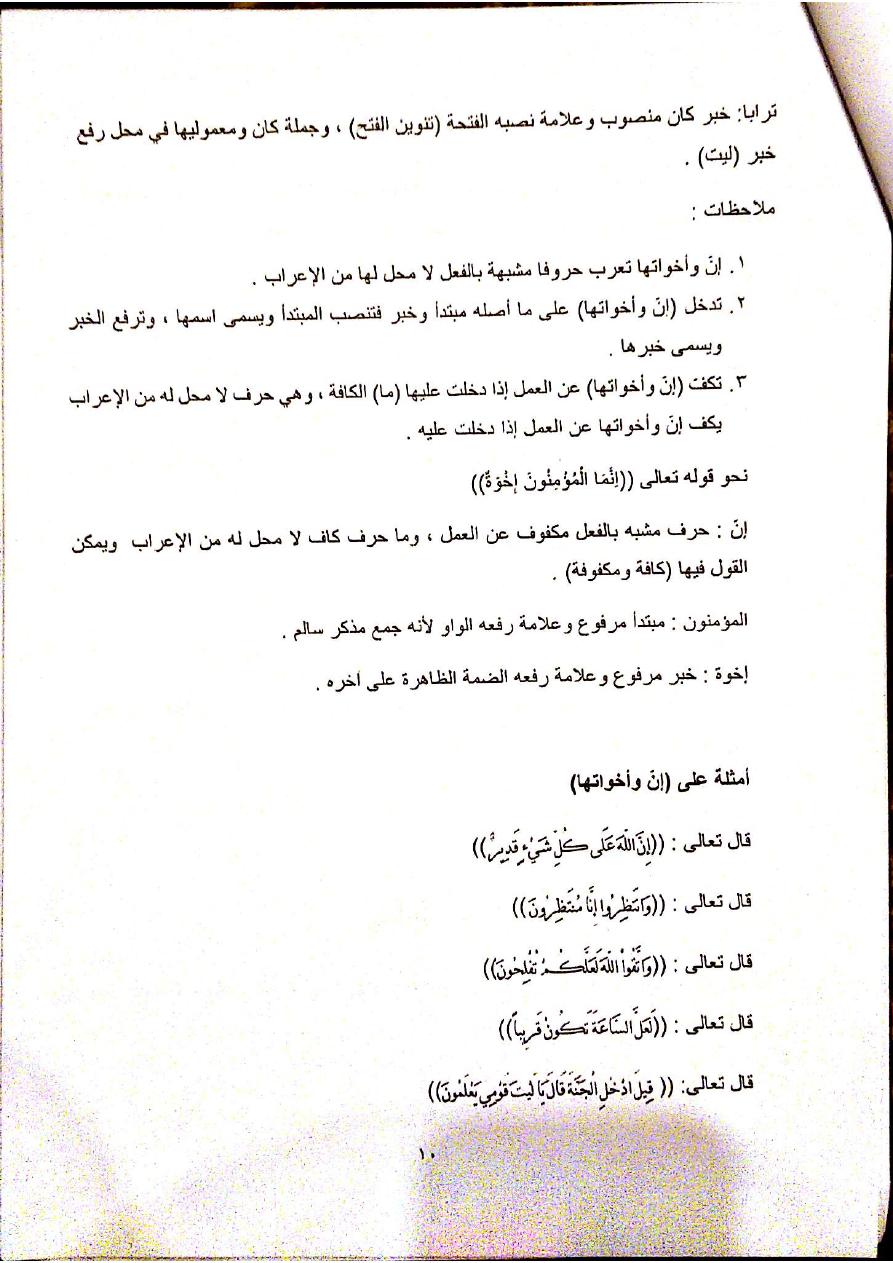 ترابا: خبر كان منصوب وعلامة نصبه الفتحة (تنوين الفتح) ، وجملة كان ومعموليها في محل رفع
خبر (ليت) .
ملاحظات :
١. إنّ وأخواتها تعرب حروفا مشبهة بالفعل لا محل لها من الإعراب .
٢. تدخل (إنّ وأخواتها) على ما أصله مبتدأ وخبر فتنصب المبتدأ ويسمى اسمها ، وترفع الخبر
ويسمى خبرها .
٣. تكفت (إنّ وأخواتها) عن العمل إذا دخلت عليها (ما) الكافة ، وهي حرف لا محل له من الإعراب
يكف إنّ وأخواتها عن العمل إذا دخلت عليه .
نحو قوله تعالى ((اِنَّمَا الْمُؤمِنُونَ إخْوَةٌ))
إنّ : حرف مشبه بالفعل مكفوف عن العمل ، وما حرف كاف لا محل له من الإعراب ويمكن
القول فيها (كافة ومكفوفة) .
المؤمنون : مبتدأ مرفوع وعلامة رفعه الواو لأنه جمع مذكر سالم .
إخوة : خبر مرفوع وعلامة رفعه الضمة الظاهرة على آخره .
أمثلة على (إنّ وأخواتها)
قال تعالى : ((إِنَّ اللَّهَ عَلَى كُلِّ شَيْءٍ قَدِيرٌ))
قال تعالى : ((وَانتَظِرُوا إِنَّا مُنتَظِرُونَ))
قال تعالى : ((وَاتَّقُواْ اللَّهَ لَعَلَّكُمْ تُفْلِحُونَ))
قال تعالى : ((لَعَلَّ السَّاعَةَ تَكُونُ قَرِيباً))
قال تعالى: (( قِيلَ ادْخُلِ الْجَنَّةَ قَالَ يَا لَيْتَ قَوْمِي يَعْلَمُونَ))
١٠